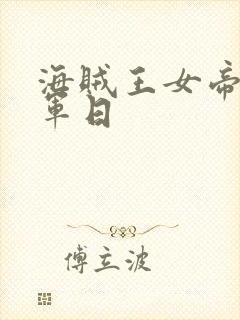 海贼王女帝
军日
傅立波